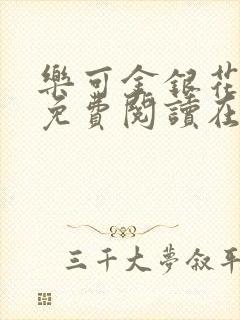 樂可金銀花
免費閱讀在
三千大夢敘平